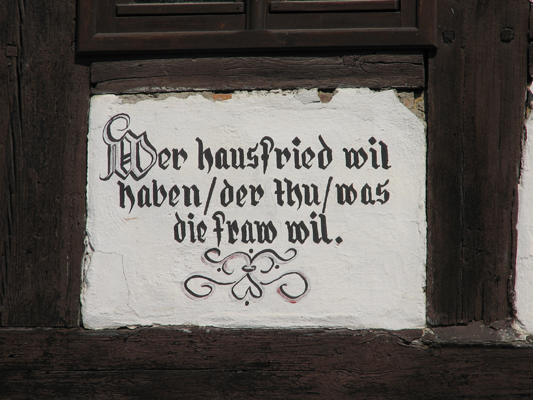 Wer hausfried wil
haben/der thu/was
die fraw wil.